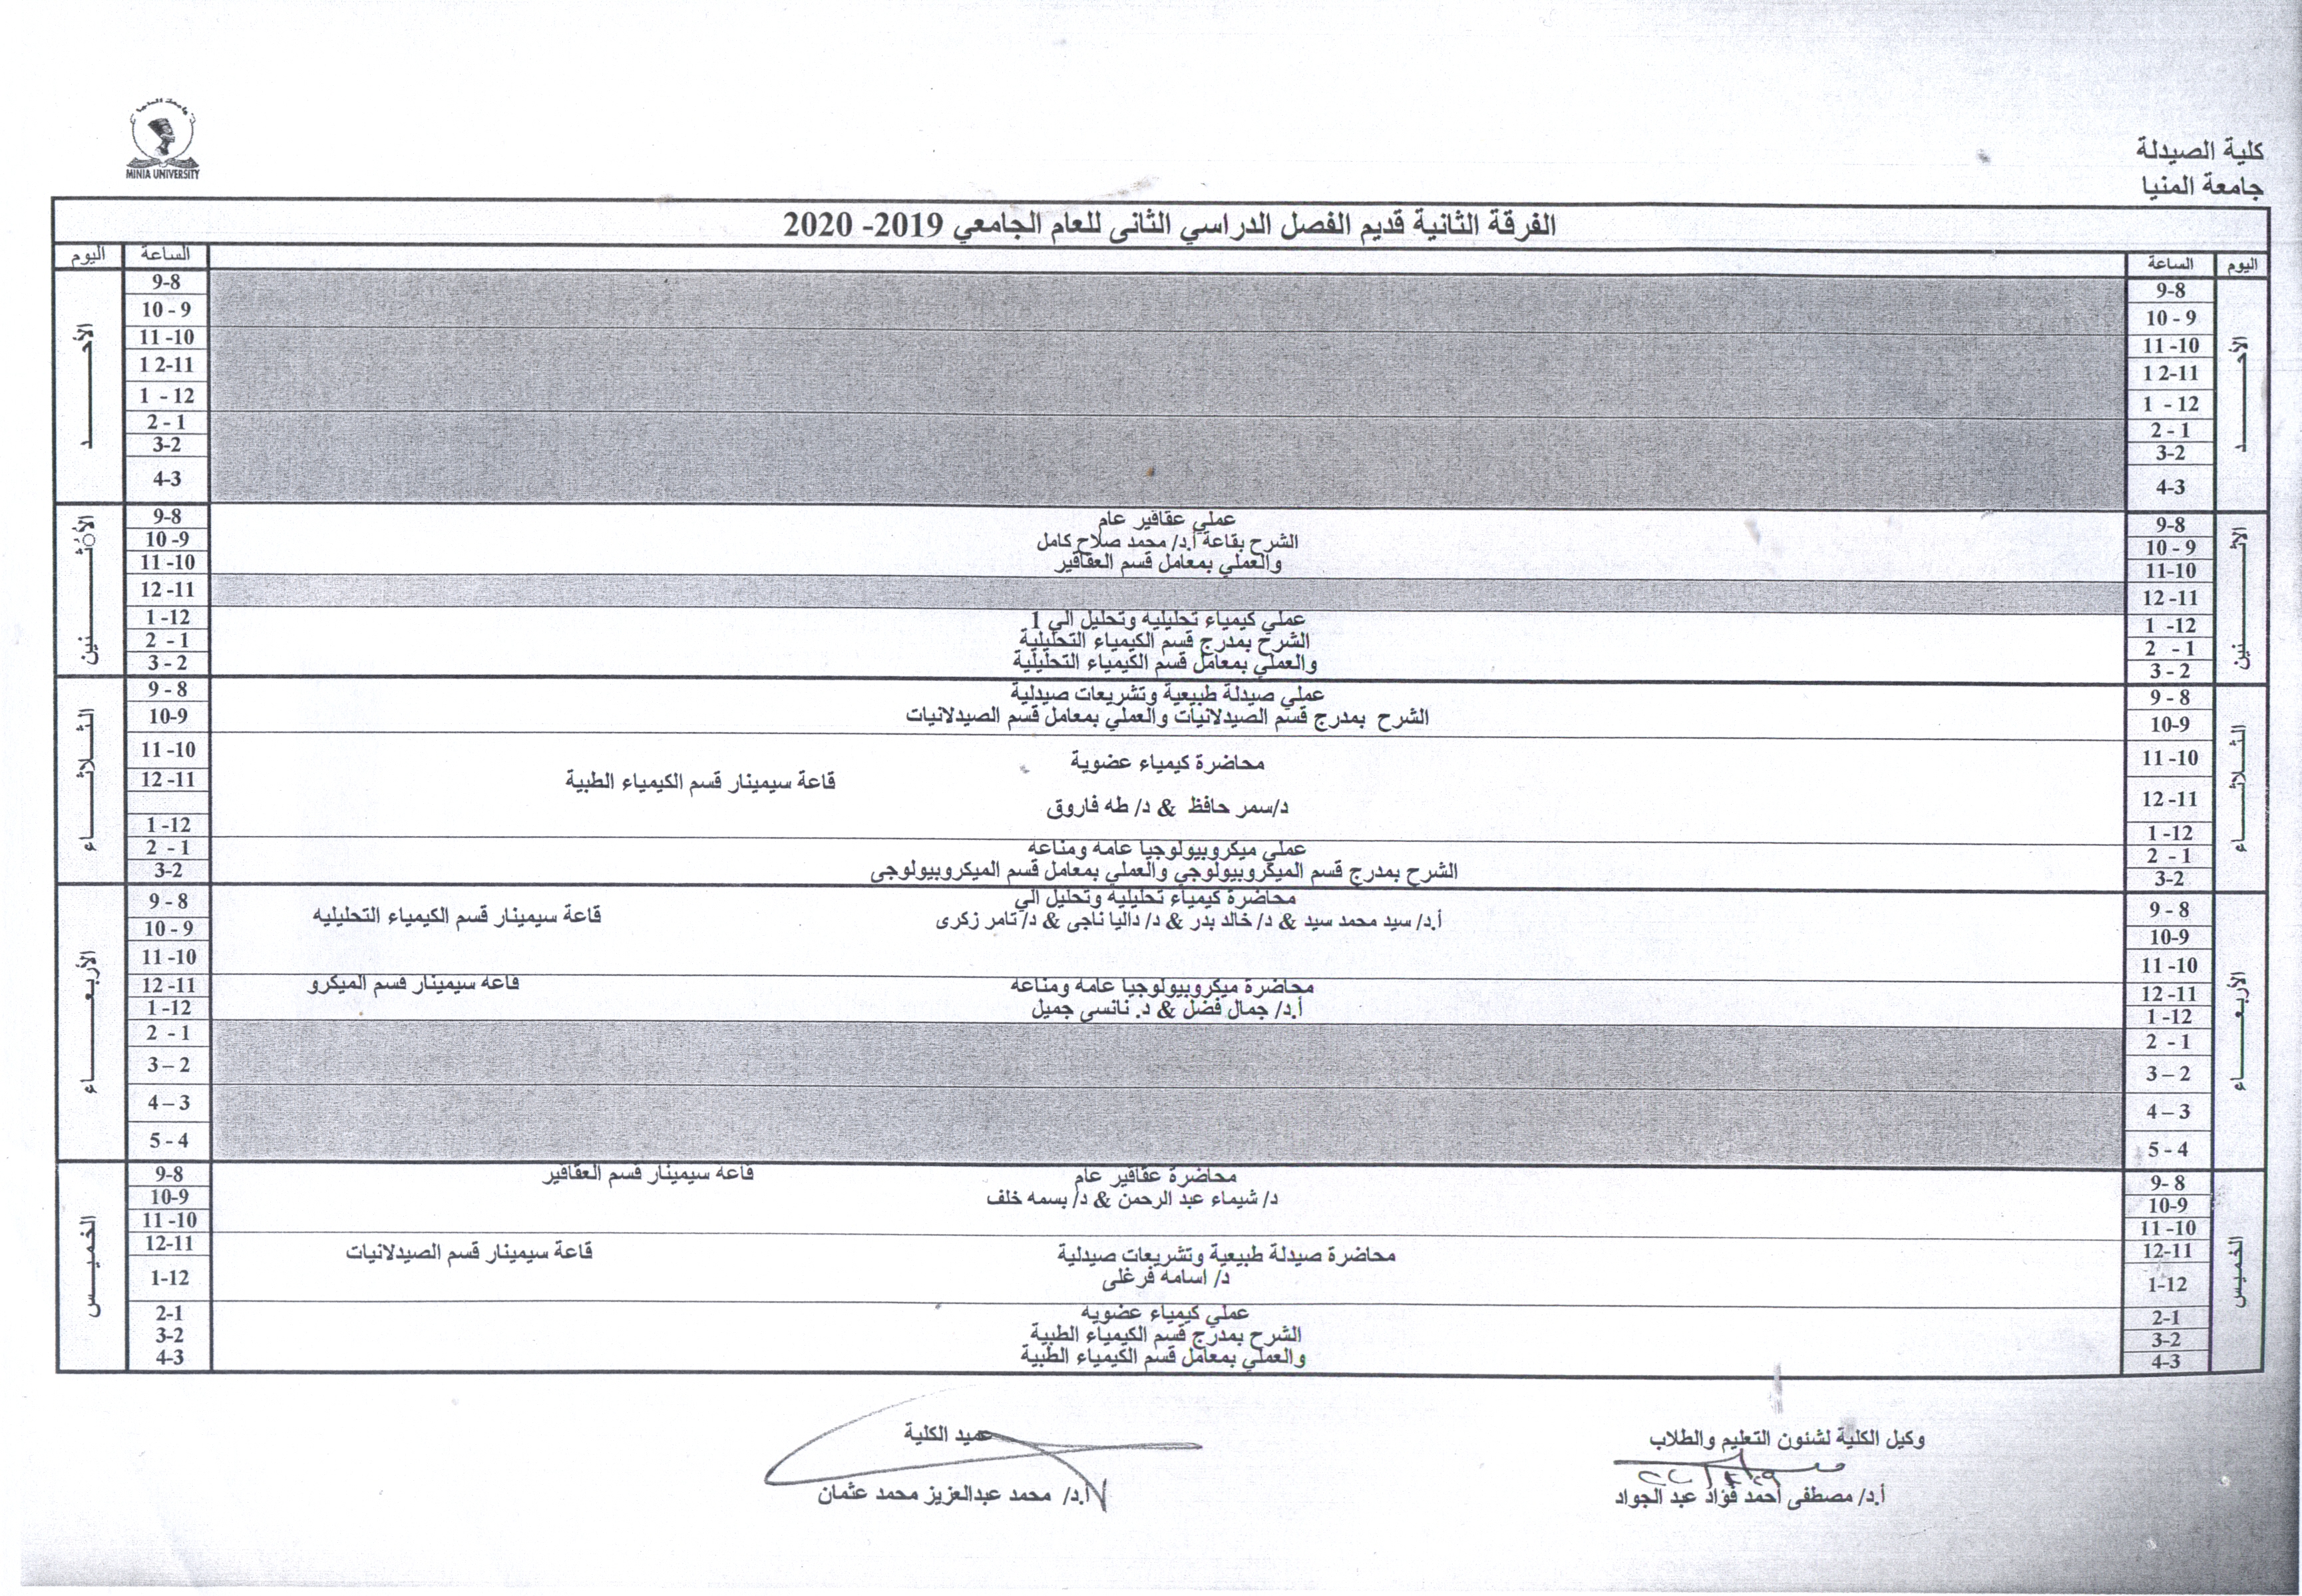 جامعة المنيا
MINIA UNIVERSITY
كلية الصيدلة
جامعة المنيا
الفرقة الثانية قديم الفصل الدراسي الثانى للعام الجامعي 2019- 2020
اليوم الساعة الساعة اليوم
الأحـــــد
9-8 9-8
10 - 9 10 - 9
11 -10 11 -10
12-11 12-11
1 - 12 1 - 12
2 - 1 2 - 1
3-2 3-2
4-3 4-3
الأثـــــنين
9-8 عملي عقاقير عام 9-8
10 - 9 الشرح بقاعة أ.د/ محمد صلاح كامل 10 -9
11-10 والعملي بمعامل قسم العقاقير 11 -10
12 -11 12 -11
1 -12 عملي كيمياء تحليليه وتحليل الي 1 1 -12
2 - 1 الشرح بمدرج قسم الكيمياء التحليلية 2 - 1
3 - 2 والعملي بمعامل قسم الكيمياء التحليلية 3 - 2
الثـــلاثـــــاء
9 - 8 عملي صيدلة طبيعية وتشريعات صيدلية 9 - 8
10-9 الشرح بمدرج قسم الصيدلانيات والعملي بمعامل قسم الصيدلانيات 10-9
11 -10 محاضرة كيمياء عضوية 11 -10
12 -11 قاعة سيمينار قسم الكيمياء الطبية 12 -11
د/سمر حافظ & د/ طه فاروق
1 -12 1 -12
2 - 1 عملي ميكروبيولوجيا عامه ومناعه 2 - 1
3-2 الشرح بمدرج قسم الميكروبيولوجي والعملي بمعامل قسم الميكروبيولوجى 3-2
الأربـعـــــاء
9 - 8 محاضرة كيمياء تحليليه وتحليل الي 9 - 8
أ.د/ سيد محمد سيد & د/ خالد بدر & د/ داليا ناجى & د/ تامر زكرى قاعة سيمينار قسم الكيمياء التحليليه
10-9 10 - 9
11 -10 11 -10
12 -11 محاضرة ميكروبيولوجيا عامه ومناعه قاعه سيمينار قسم الميكرو 12 -11
1 -12 أ.د/ جمال فضل & د. نانسى جميل 1 -12
2 - 1 2 - 1
3 – 2 3 – 2
4 – 3 4 – 3
5 - 4 5 - 4
الخميـــس
9- 8 محاضرة عقاقير عام قاعه سيمينار قسم العقاقير 9-8
10-9 د/ شيماء عبد الرحمن & د/ بسمه خلف 10-9
11 -10 11 -10
12-11 محاضرة صيدلة طبيعية وتشريعات صيدلية قاعة سيمينار قسم الصيدلانيات 12-11
1-12 د/ اسامه فرغلى 1-12
2-1 عملي كيمياء عضويه 2-1
3-2 الشرح بمدرج قسم الكيمياء الطبية 3-2
4-3 والعملي بمعامل قسم الكيمياء الطبية 4-3
وكيل الكلية لشئون التعليم والطلاب
أ.د/ مصطفى أحمد فؤاد عبد الجواد
عميد الكلية
أ.د/ محمد عبدالعزيز محمد عثمان